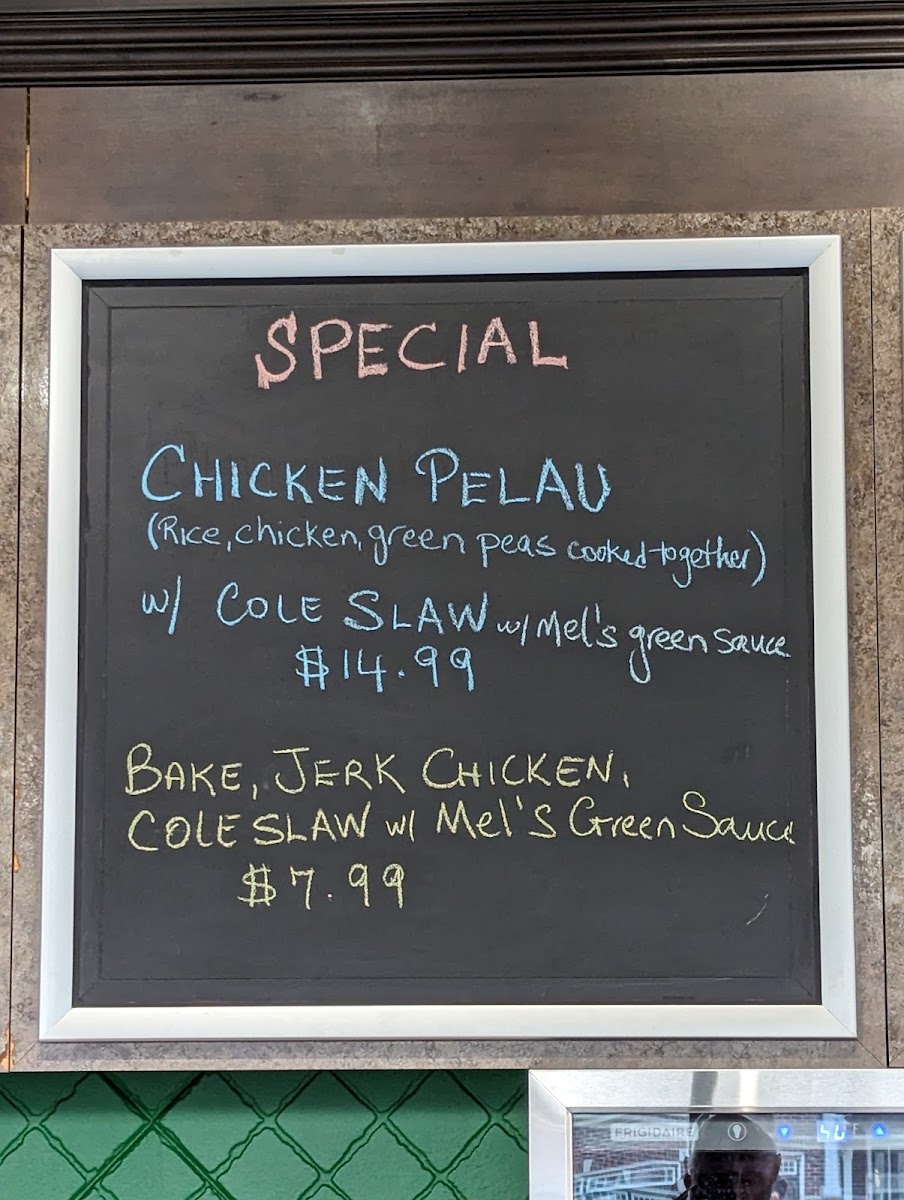 SPECIAL
CHICKEN PELAU
(Rice, chicken, green peas cooked together)
w/ COLE SLAW w/ Mel's green sauce
$14.99
BAKE, JERK CHICKEN,
COLE SLAW w/ Mel's Green Sauce
$7.99
FRIGIDAIRE